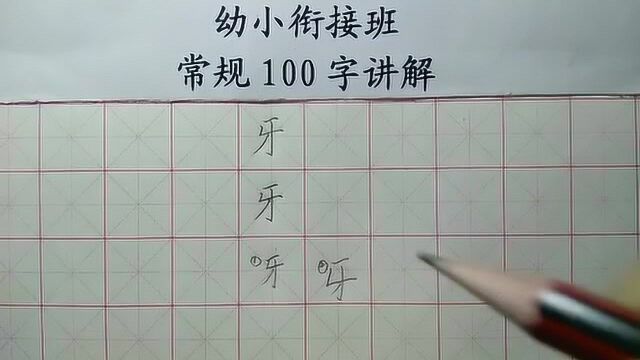 幼小衔接班
常规100字讲解
牙
牙
呀 呀